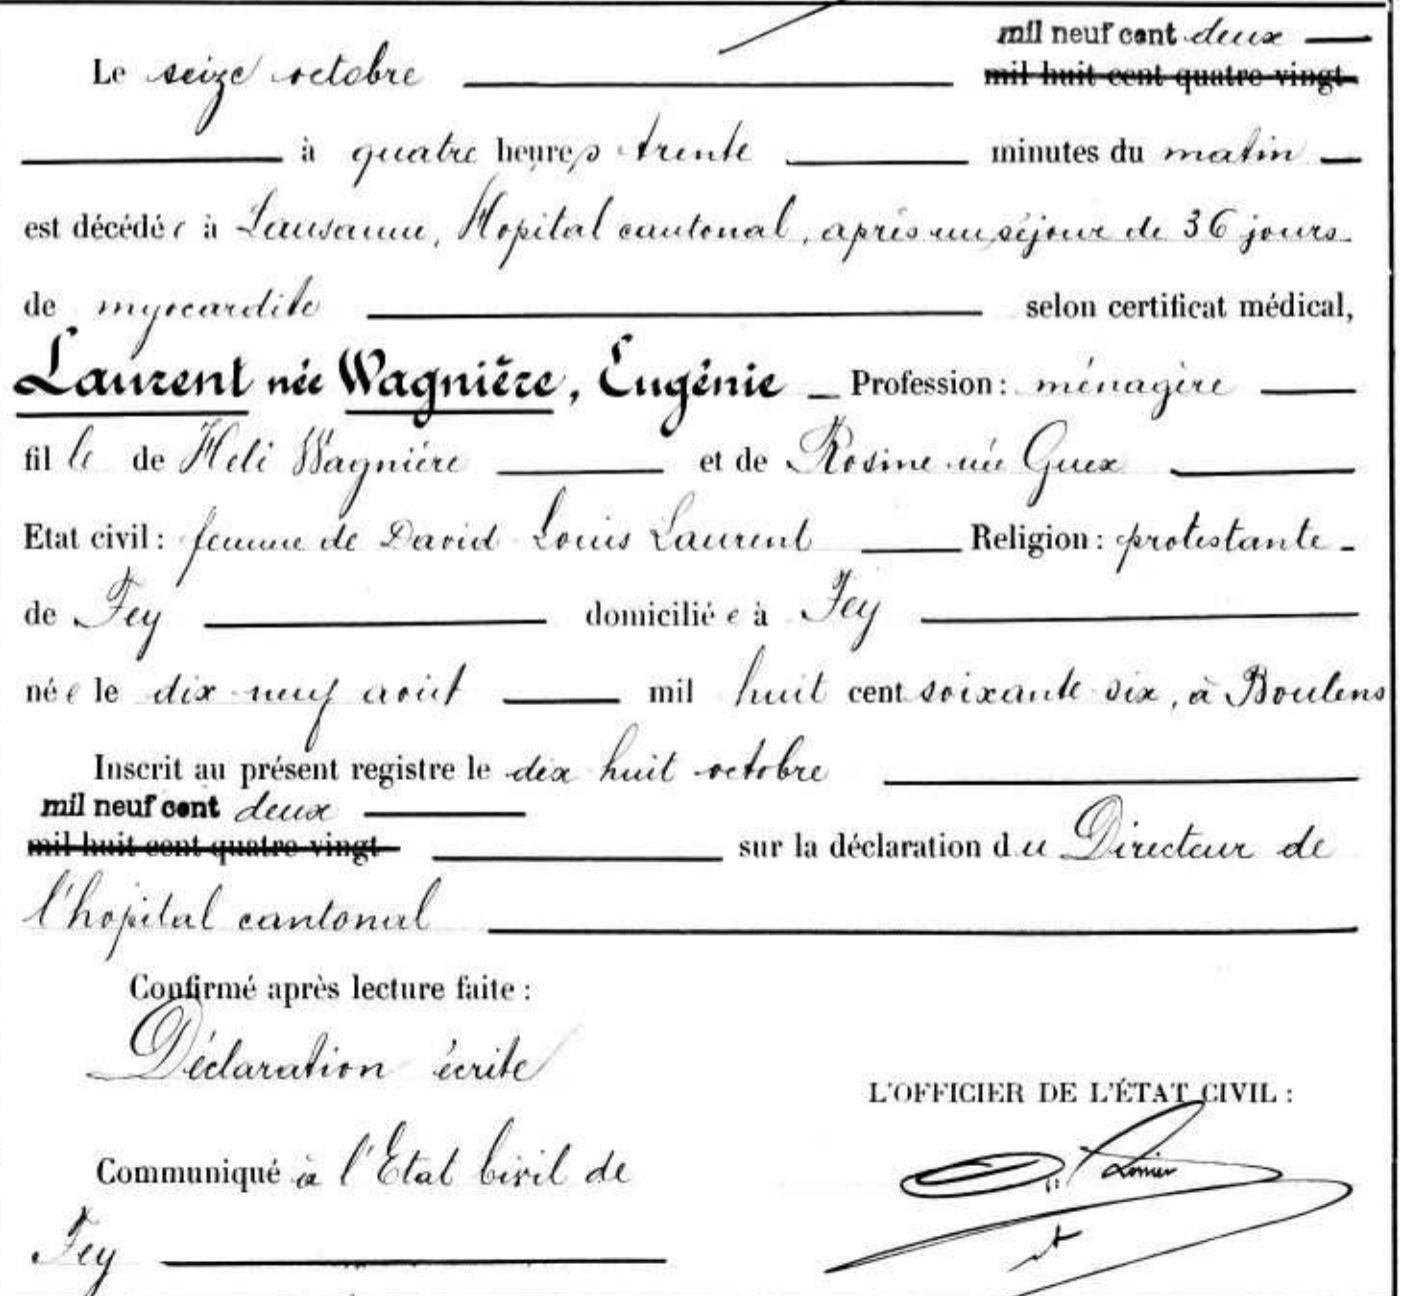 mil neuf cent deux
Le seize octobre mil huit cent quatre vingt
à quatre heures trente minutes du matin
est décédée à Lausanne, Hopital cantonal, après un séjour de 36 jours
de myocardite selon certificat médical,
Laurent née Wagnière, Eugénie Profession : ménagère
fille de Héli Wagnière et de Rosine née Guex
Etat civil : femme de David Louis Laurent Religion : protestante
de Fey domiciliée à Fey
née le dix neuf août mil huit cent soixante six, à Boulens
Inscrit au présent registre le dix huit octobre
mil neuf cent deux
mil huit cent quatre vingt sur la déclaration du Directeur de
l'hopital cantonal
Confirmé après lecture faite :
Déclaration écrite
L'OFFICIER DE L'ÉTAT CIVIL :
Communiqué à l'Etat Civil de
Fey